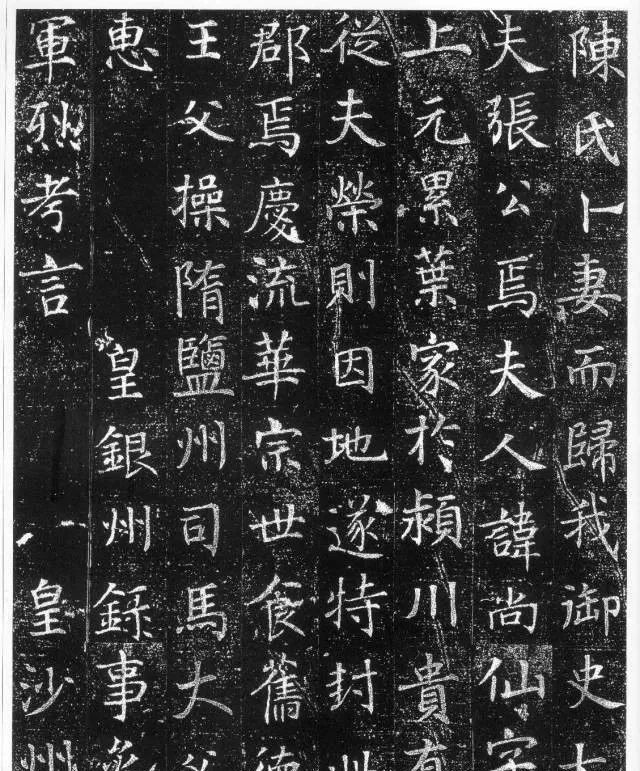 陳氏卜妻而歸我御史大
夫張公焉夫人諱尚仙字
上元累葉家於潁川貴有
從夫榮則因地遂特封
郡焉慶流華宗世食舊德
王父操隋鹽州司馬大父
惠皇銀州錄事參
軍烈考言皇沙州